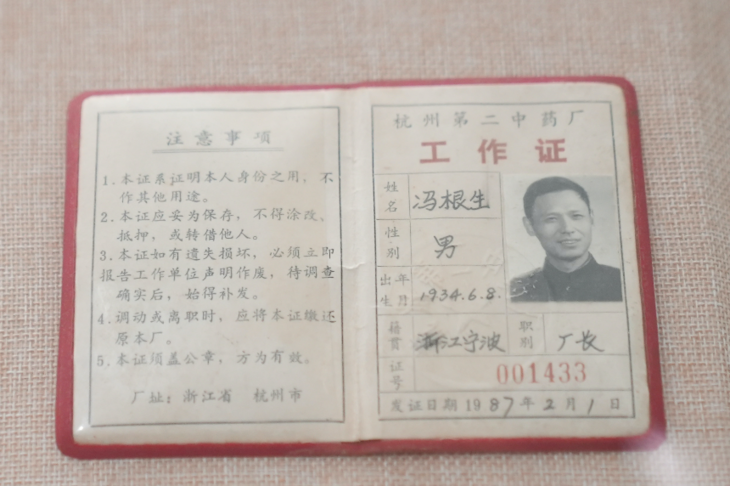 注意事项
1.本证系证明本人身份之用，不
作其他用途。
2.本证应妥为保存，不得涂改、
抵押，或转借他人。
3.本证如有遗失损坏，必须立即
报告工作单位声明作废，待调查
确实后，始得补发。
4.调动或离职时，应将本证缴还
原本厂。
5.本证须盖公章，方为有效。
厂址：浙江省 杭州市
杭州第二中药厂
工作证
姓名 冯根生
性别 男
出生年月 1934.6.8.
籍贯 浙江宁波 职别 厂长
证号 001433
发证日期1987年2月1日